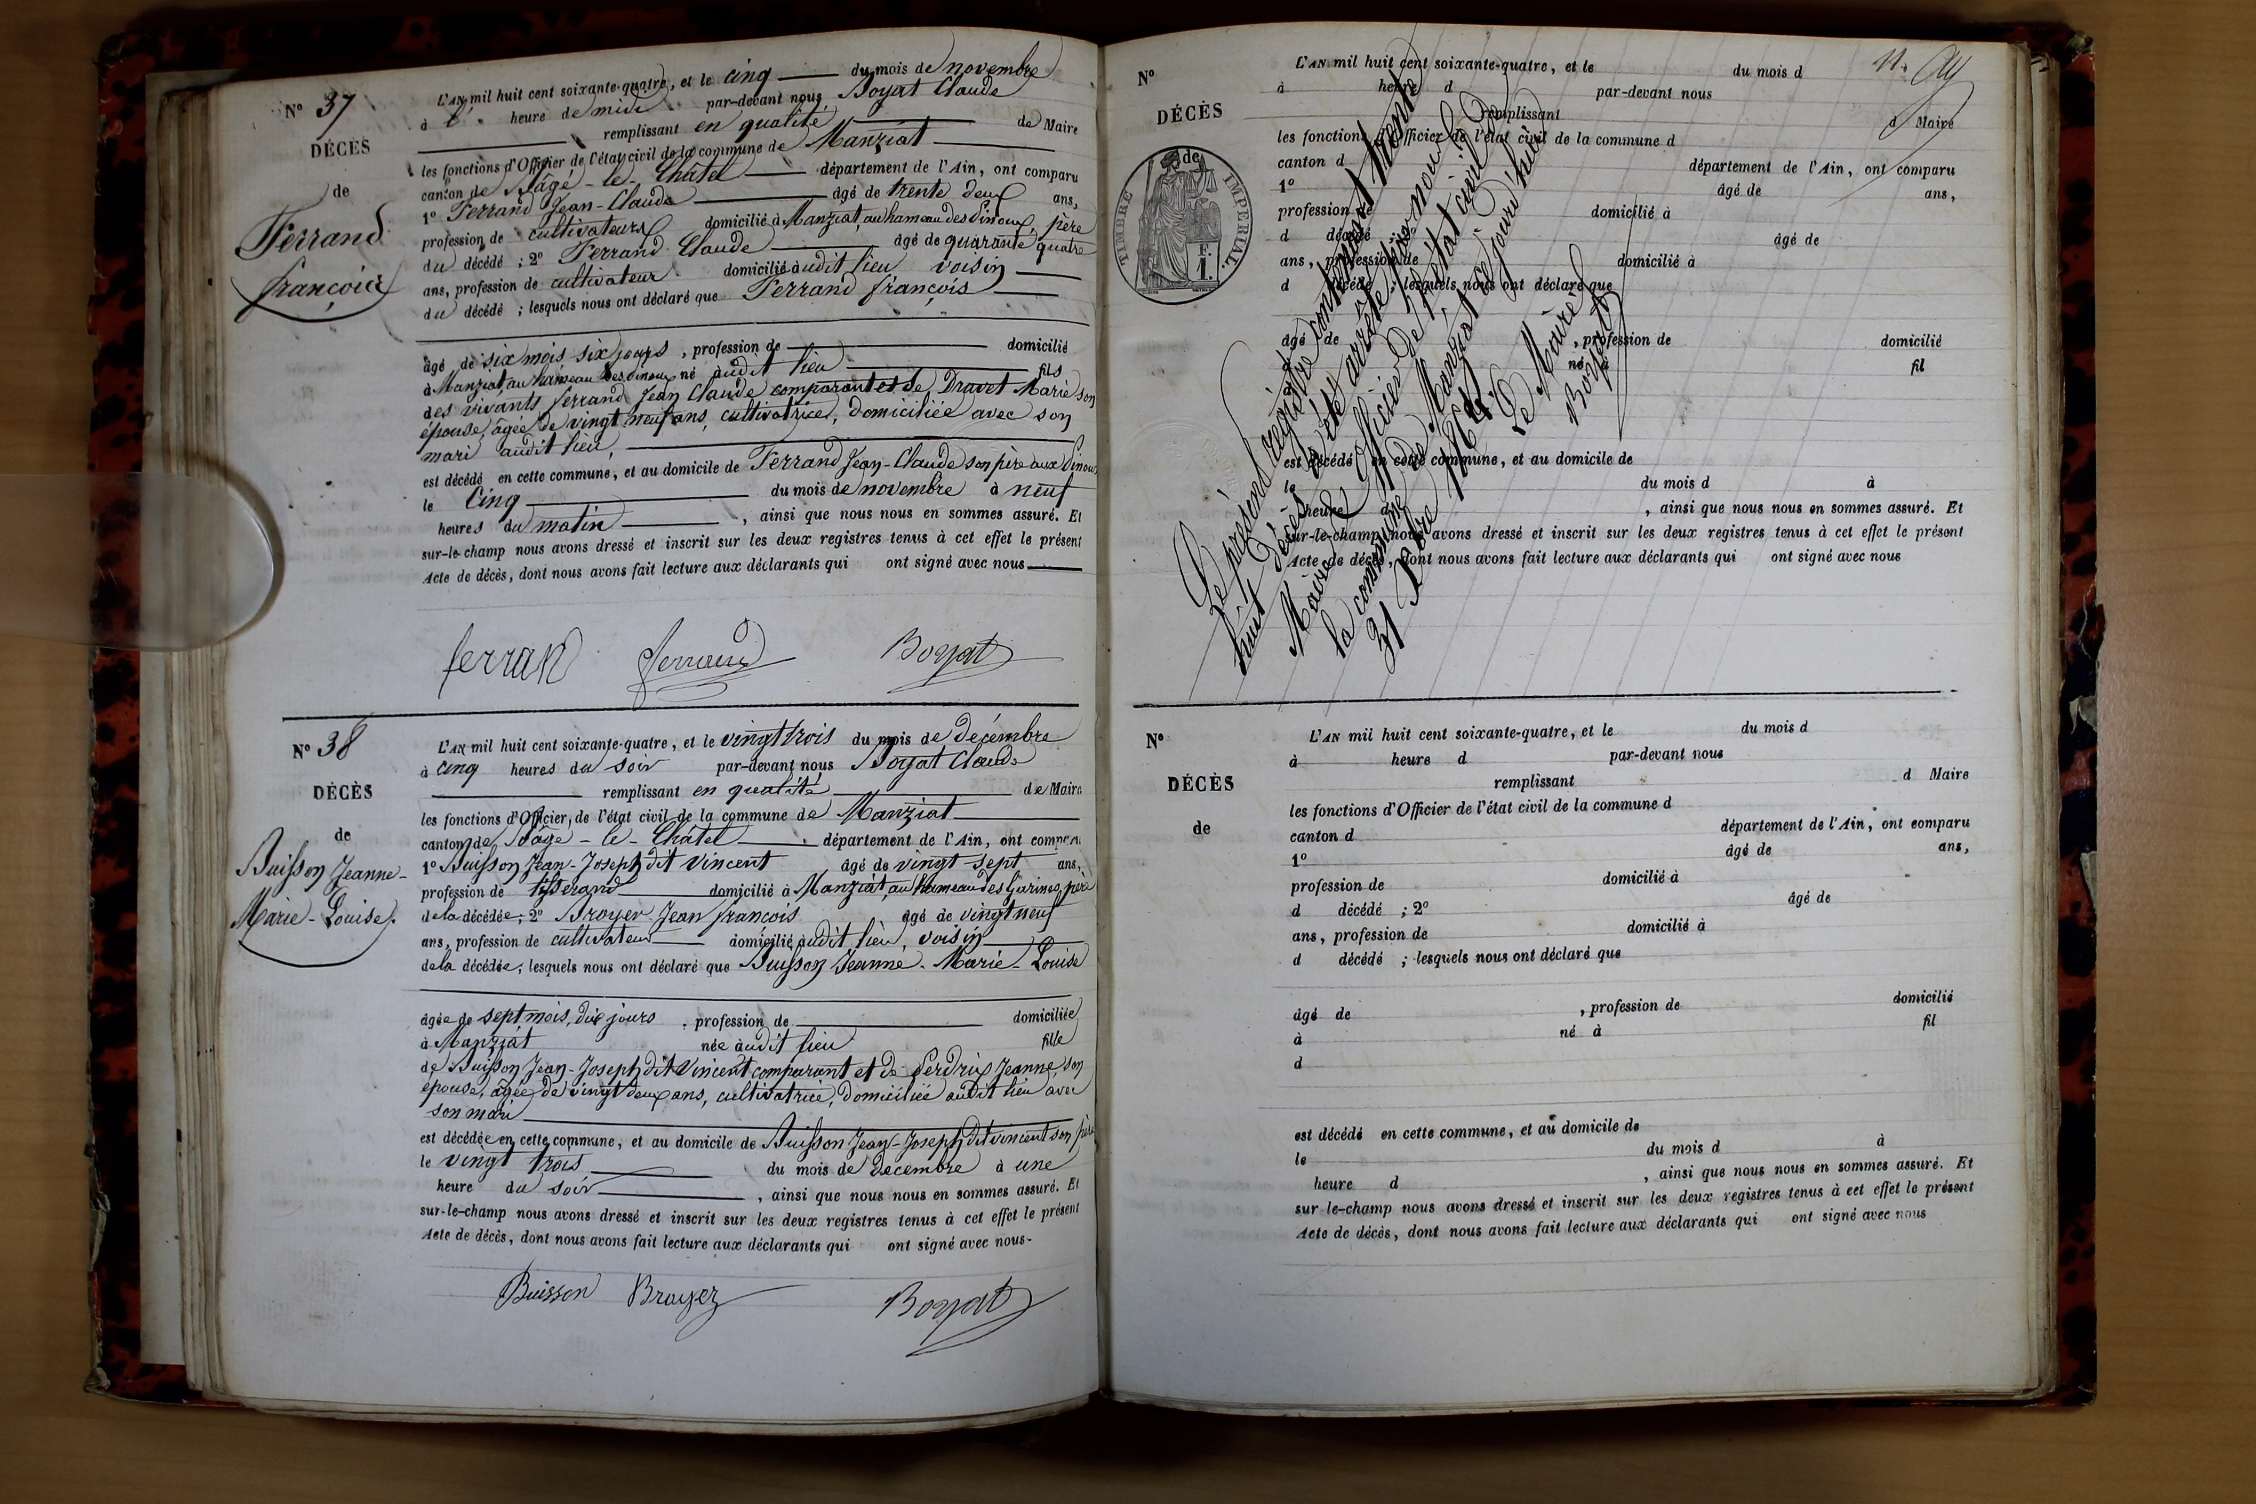 N° 37
DÉCÈS
de
Ferrand
françois
L'AN mil huit cent soixante-quatre, et le cinq du mois de novembre
à l' heure de midi par-devant nous Boyat Claude
remplissant en qualité de Maire
les fonctions d'Officier de l'état civil de la commune de Manziat
canton de Bâgé-le-Châtel département de l'Ain, ont comparu
1° Ferrand Jean-Claude âgé de trente deux ans,
profession de cultivateur domicilié à Manziat, au hameau des Dinoux, père
du décédé ; 2° Ferrand Claude âgé de quarante quatre
ans, profession de cultivateur domicilié audit lieu voisin
du décédé ; lesquels nous ont déclaré que Ferrand françois
âgé de six mois six jours, profession de domicilié
à Manziat, au hameau des Dinoux né audit lieu fils
des vivants ferrand Jean Claude comparant et de Dravet Marie son
épouse, âgée de vingt neuf ans, cultivatrice, domiciliée avec son
mari audit lieu,
est décédé en cette commune, et au domicile de Ferrand Jean-Claude son père aux Dinoux
le Cinq du mois de novembre à neuf
heures du matin, ainsi que nous nous en sommes assuré. Et
sur-le-champ nous avons dressé et inscrit sur les deux registres tenus à cet effet le présent
Acte de décès, dont nous avons fait lecture aux déclarants qui ont signé avec nous
ferran ferrand Boyat
N° 38
DÉCÈS
de
Buisson Jeanne-
Marie-Louise.
L'AN mil huit cent soixante-quatre, et le vingt trois du mois de décembre
à cinq heures du soir par-devant nous Boyat Claude
remplissant en qualité de Maire
les fonctions d'Officier, de l'état civil de la commune de Manziat
canton de Bâgé-le-Châtel département de l'Ain, ont comparu
1° Buisson Jean-Joseph dit Vincent âgé de vingt sept ans,
profession de tisserand domicilié à Manziat, au hameau des Gurines, père
de la décédée ; 2° Broyer Jean françois âgé de vingt neuf
ans, profession de cultivateur domicilié audit lieu, voisin
de la décédée ; lesquels nous ont déclaré que Buisson Jeanne-Marie-Louise
âgée de sept mois, dix jours, profession de domiciliée
à Manziat née audit lieu fille
de Buisson Jean-Joseph dit Vincent comparant et de Perdrix Jeanne, son
épouse, âgée de vingt deux ans, cultivatrice, domiciliée audit lieu avec
son mari
est décédée en cette commune, et au domicile de Buisson Jean-Joseph dit vincent son père
le vingt trois du mois de décembre à une
heure du soir, ainsi que nous nous en sommes assuré. Et
sur-le-champ nous avons dressé et inscrit sur les deux registres tenus à cet effet le présent
Acte de décès, dont nous avons fait lecture aux déclarants qui ont signé avec nous.
Buisson Broyer Boyat
N°
DÉCÈS
de
TIMBRE IMPÉRIAL.
1 F.
L'AN mil huit cent soixante-quatre, et le du mois d
à heure d par-devant nous
remplissant d Maire
les fonctions d'Officier de l'état civil de la commune d
canton d département de l'Ain, ont comparu
1° âgé de ans,
profession de domicilié à
d décédé ; 2° âgé de
ans, profession de domicilié à
d décédé ; lesquels nous ont déclaré que
âgé de , profession de domicilié
né fil
est décédé en cette commune, et au domicile de
le du mois d à
heure d , ainsi que nous nous en sommes assuré. Et
sur-le-champ nous avons dressé et inscrit sur les deux registres tenus à cet effet le présent
Acte de décès, dont nous avons fait lecture aux déclarants qui ont signé avec nous
Le présent registre contenant trente
huit décès a été arrêté par nous
Maire Officier de l'état civil de
la commune de Manziat ce jourd'hui
31 Xbre 1864.
Le Maire
Boyat
N°
DÉCÈS
de
L'AN mil huit cent soixante-quatre, et le du mois d
à heure d par-devant nous
remplissant d Maire
les fonctions d'Officier de l'état civil de la commune d
canton d département de l'Ain, ont comparu
1° âgé de ans,
profession de domicilié à
d décédé ; 2° âgé de
ans, profession de domicilié à
d décédé ; lesquels nous ont déclaré que
âgé de , profession de domicilié
à né à fil
d
est décédé en cette commune, et au domicile de
le du mois d à
heure d , ainsi que nous nous en sommes assuré. Et
sur-le-champ nous avons dressé et inscrit sur les deux registres tenus à cet effet le présent
Acte de décès, dont nous avons fait lecture aux déclarants qui ont signé avec nous